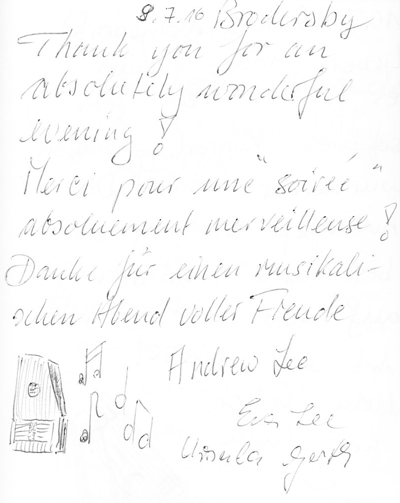 8.7.16 Brodersby
Thank you for an
absolutely wonderful
evening!
Merci pour une "soirée"
absoluement merveilleuse!
Danke für einen musikali-
schen Abend voller Freude
Andrew Lee
Eva Lee
Ursula